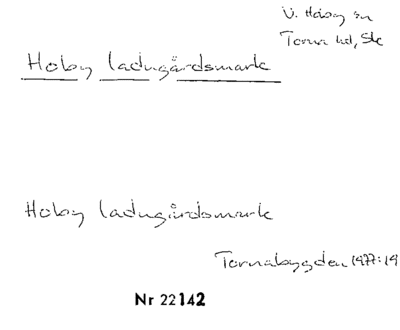 V. Hoby sn
Torna hd, Sk
Hoby ladugårdsmark
Hoby ladugårdsmark
Tornabygden 1977:19
Nr 22142